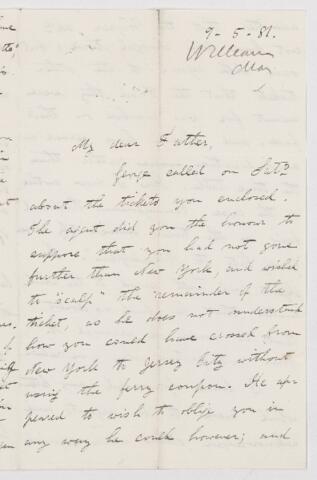 9-5-81.
William
Mar
My dear Father,
George called on Satd
about the tickets you enclosed.
The agent did you the honour to
suppose that you had not gone
further than New York, and wished
to "scalp" the remainder of the
ticket, as he does not understand
how you could have crossed from
New York to Jersey City without
using the ferry coupon. He ap-
peared to wish to oblige you in
any way he could however; and